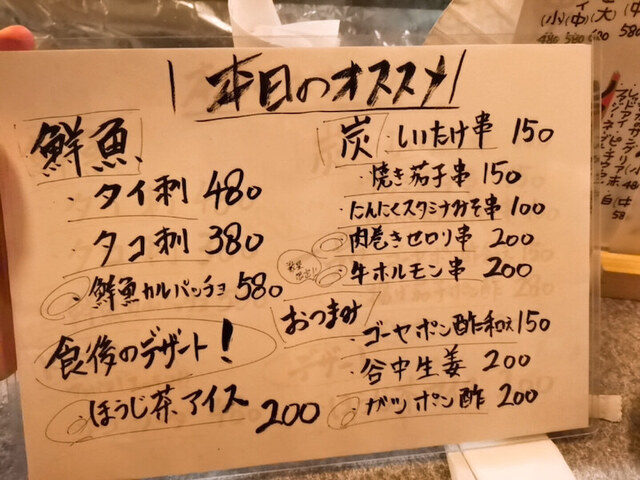 本日のオススメ
鮮魚
・タイ刺 480
・タコ刺 380
・鮮魚カルパッチョ 580
食後のデザート！
・ほうじ茶アイス 200
炭
・しいたけ串 150
・焼き茄子串 150
・にんにくスタミナみそ串 100
・肉巻きセロリ串 200
・牛ホルモン串 200
おつまみ
・ゴーヤポン酢和え 150
・谷中生姜 200
・ガツポン酢 200
(小)(中)(大)
480 580 680
580